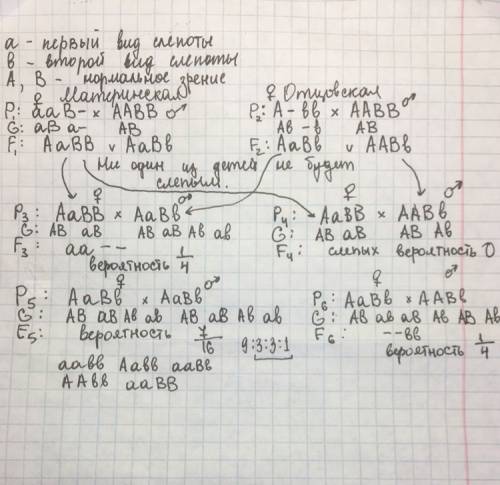 a - первый вид слепоты
в - второй вид слепоты
A, B - нормальное зрение
♀ Материнская ♀ Отцовская
P₁: aaB- × AABB ♂ P₂: A-вв × AABB ♂
G: aB a- AB Aв -в AB
F₁: AaBB v AaBв F₂: AaBв v AABв
Ни один из детей не будет
слепым.
♀ ♂ ♀ ♂
P₃: AaBB × AaBв P₄: AaBB × AABв
G: AB aB AB aB Aв aв G: AB aB AB Aв
F₃: aa-- F₄: слепых вероятность 0
вероятность 1/4
♀ ♂ ♀ ♂
P₅: AaBв × AaBв P₆: AaBв × AABв
G: AB aB Aв aв AB aB Aв aв G: AB aв aB Aв AB Aв
F₅: вероятность 7/16 9:3:3:1 F₆: --вв
вероятность 1/4
aaвв Aaвв aaBв
AAвв aaBB